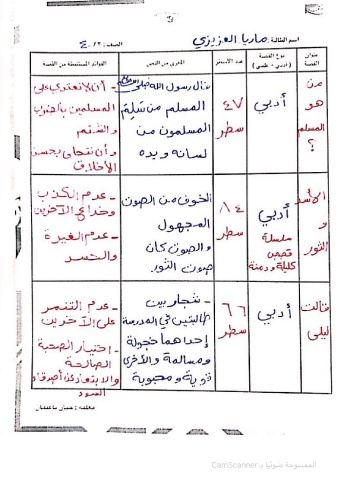 اسم الطالبة: ماريا العزيزي
الصف: ٢/٤
عنوان القصة
نوع القصة (أدبي - علمي)
عدد الأسطر
المغزى من النص
الفوائد المستنبطة من القصة
من هو المسلم ؟
أدبي
٤٧ سطر
قال رسول الله
المسلم من سلم
المسلمون من
لسانه ويده
- أن لا نعتدي على
المسلمين بالضرب
والشتم
وأن نتحلى بحسن
الأخلاق
الأسد و الثور
أدبي
سلسلة
قصص
كليلة ودمنة
٨٤ سطر
الخوف من الصوت
المجهول
والصوت كان
صوت الثور.
- عدم الكذب
وخداع الآخرين
- عدم الغيرة
والحسد
قالت ليلى
أدبي
٦٦ سطر
- شجار بين
طالبتين في المدرسة
إحداهما خجولة
ومسالمة والأخرى
قوية ومحبوبة
- عدم التنمر
على الآخرين
- اختيار الصحبة
الصالحة
والابتعاد عن أصدقاء
السوء
معلمة : حنان
الممسوحة ضوئيا بـ CamScanner